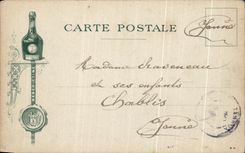 CARTE POSTALE
Yonne
Madame
et ses enfants
Chablis
Yonne